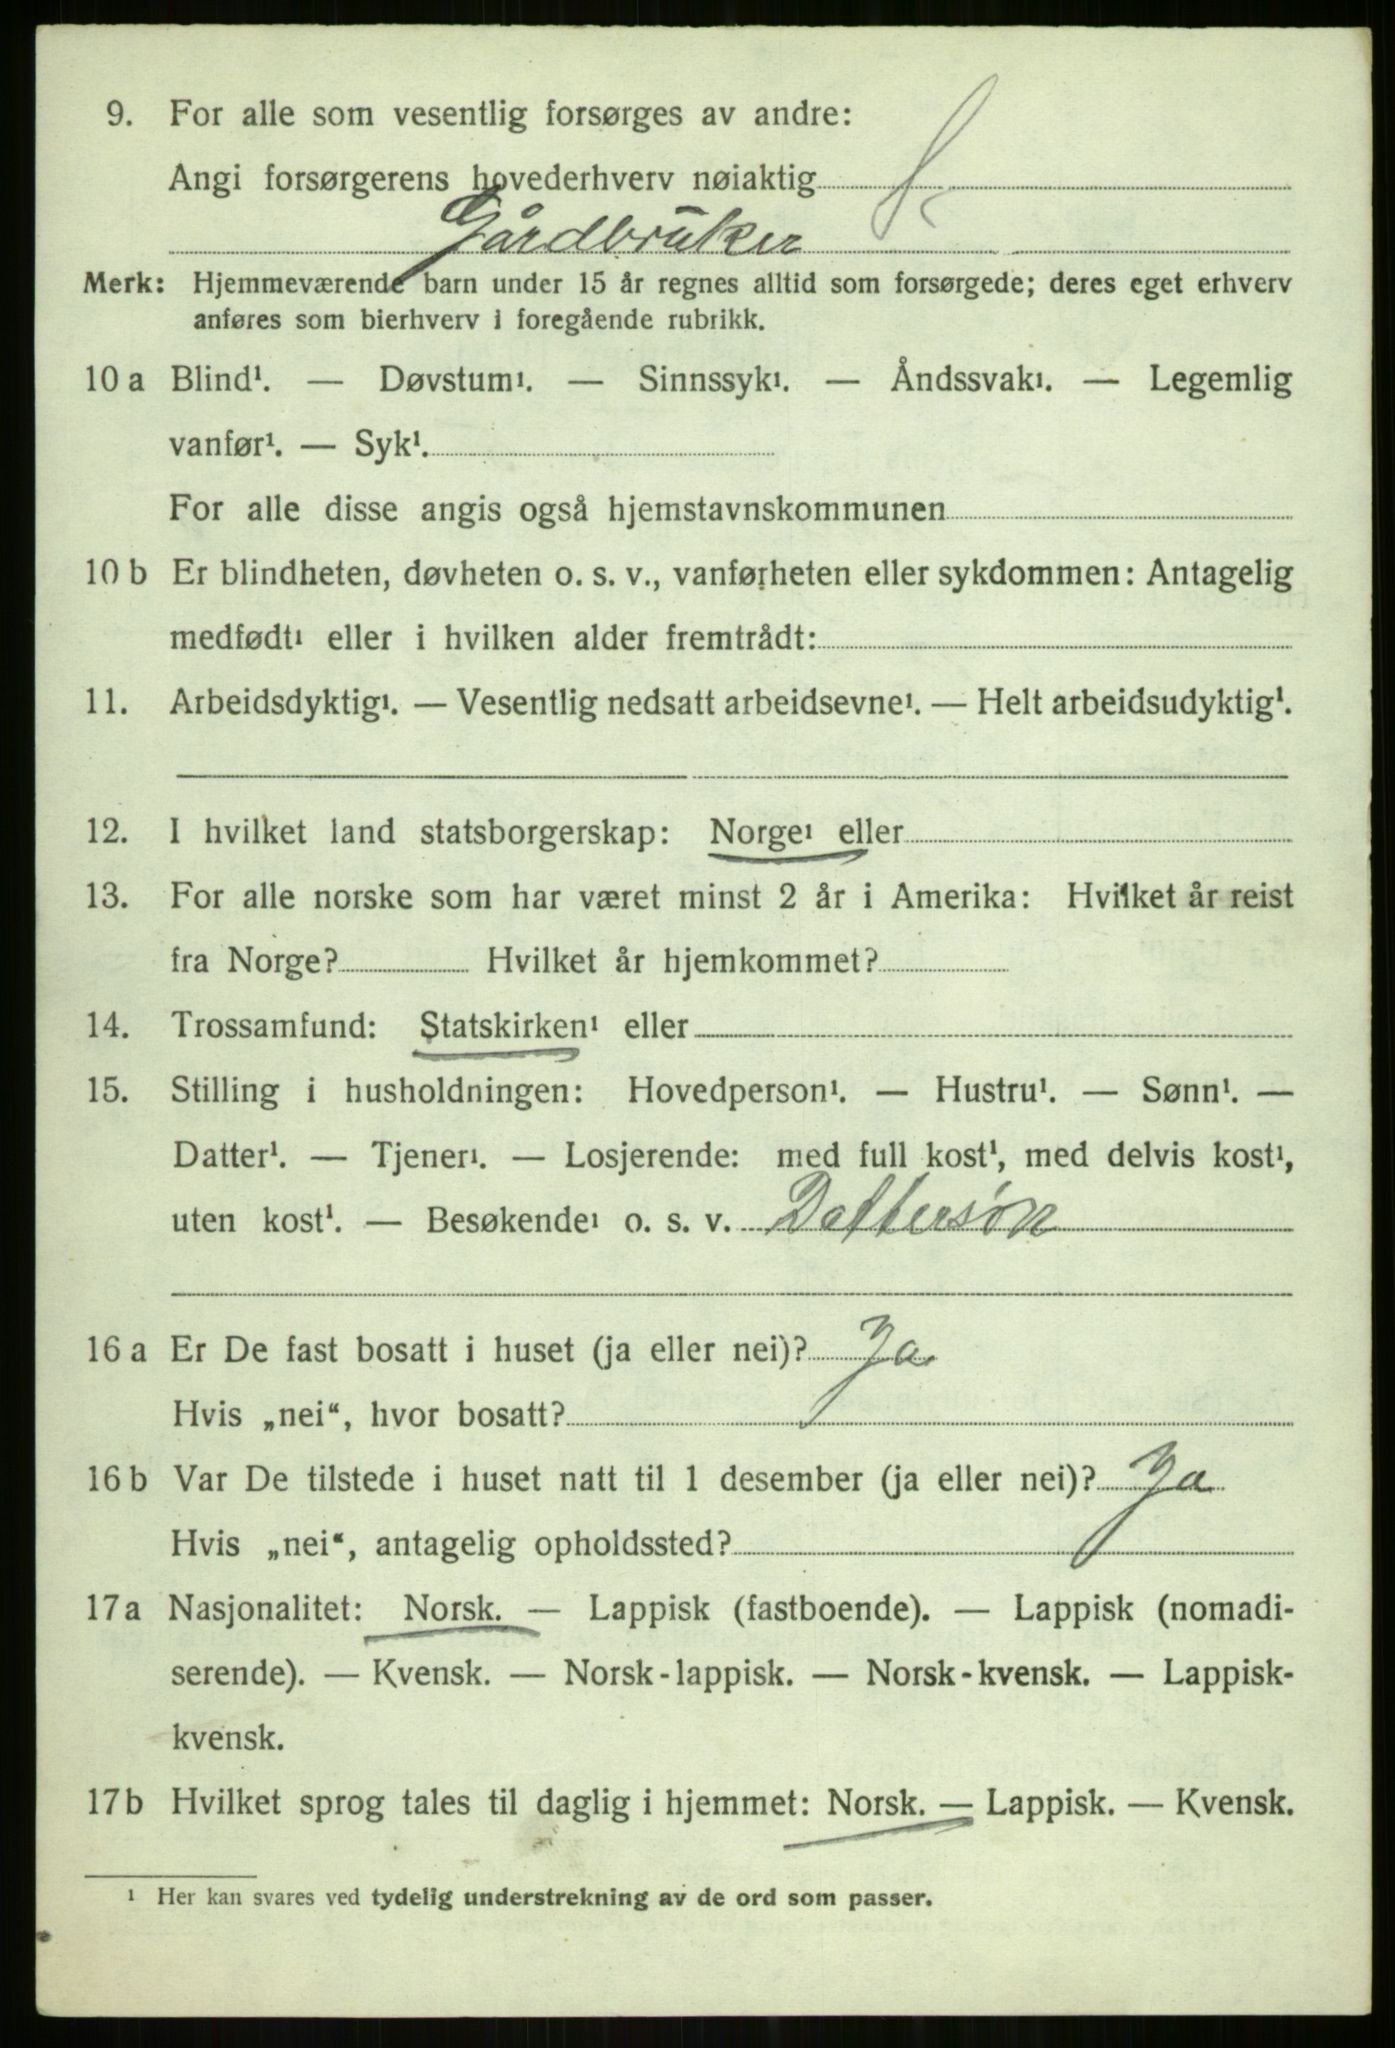 9. For alle som vesentlig forsørges av andre:
Angi forsørgerens hovederhverv nøiaktig
Gårdbruker
Merk: Hjemmeværende barn under 15 år regnes alltid som forsørgede; deres eget erhverv
anføres som bierhverv i foregående rubrikk.
10 a Blind¹. — Døvstum¹. — Sinnssyk¹. — Åndssvak¹. — Legemlig
vanfør¹. — Syk¹.
For alle disse angis også hjemstavnskommunen
10 b Er blindheten, døvheten o. s. v., vanførheten eller sykdommen: Antagelig
medfødt¹ eller i hvilken alder fremtrådt:
11. Arbeidsdyktig¹. — Vesentlig nedsatt arbeidsevne¹. — Helt arbeidsudyktig¹.
12. I hvilket land statsborgerskap: Norge¹ eller
13. For alle norske som har været minst 2 år i Amerika: Hvilket år reist
fra Norge? Hvilket år hjemkommet?
14. Trossamfund: Statskirken¹ eller
15. Stilling i husholdningen: Hovedperson¹. — Hustru¹. — Sønn¹. —
Datter¹. — Tjener¹. — Losjerende: med full kost¹, med delvis kost¹,
uten kost¹. — Besøkende¹ o. s. v. Dattersøn
16 a Er De fast bosatt i huset (ja eller nei)? Ja
Hvis „nei“, hvor bosatt?
16 b Var De tilstede i huset natt til 1 desember (ja eller nei)? Ja
Hvis „nei“, antagelig opholdssted?
17 a Nasjonalitet: Norsk. — Lappisk (fastboende). — Lappisk (nomadi-
serende). — Kvensk. — Norsk-lappisk. — Norsk-kvensk. — Lappisk-
kvensk.
17 b Hvilket sprog tales til daglig i hjemmet: Norsk. — Lappisk. — Kvensk.
¹ Her kan svares ved tydelig understrekning av de ord som passer.